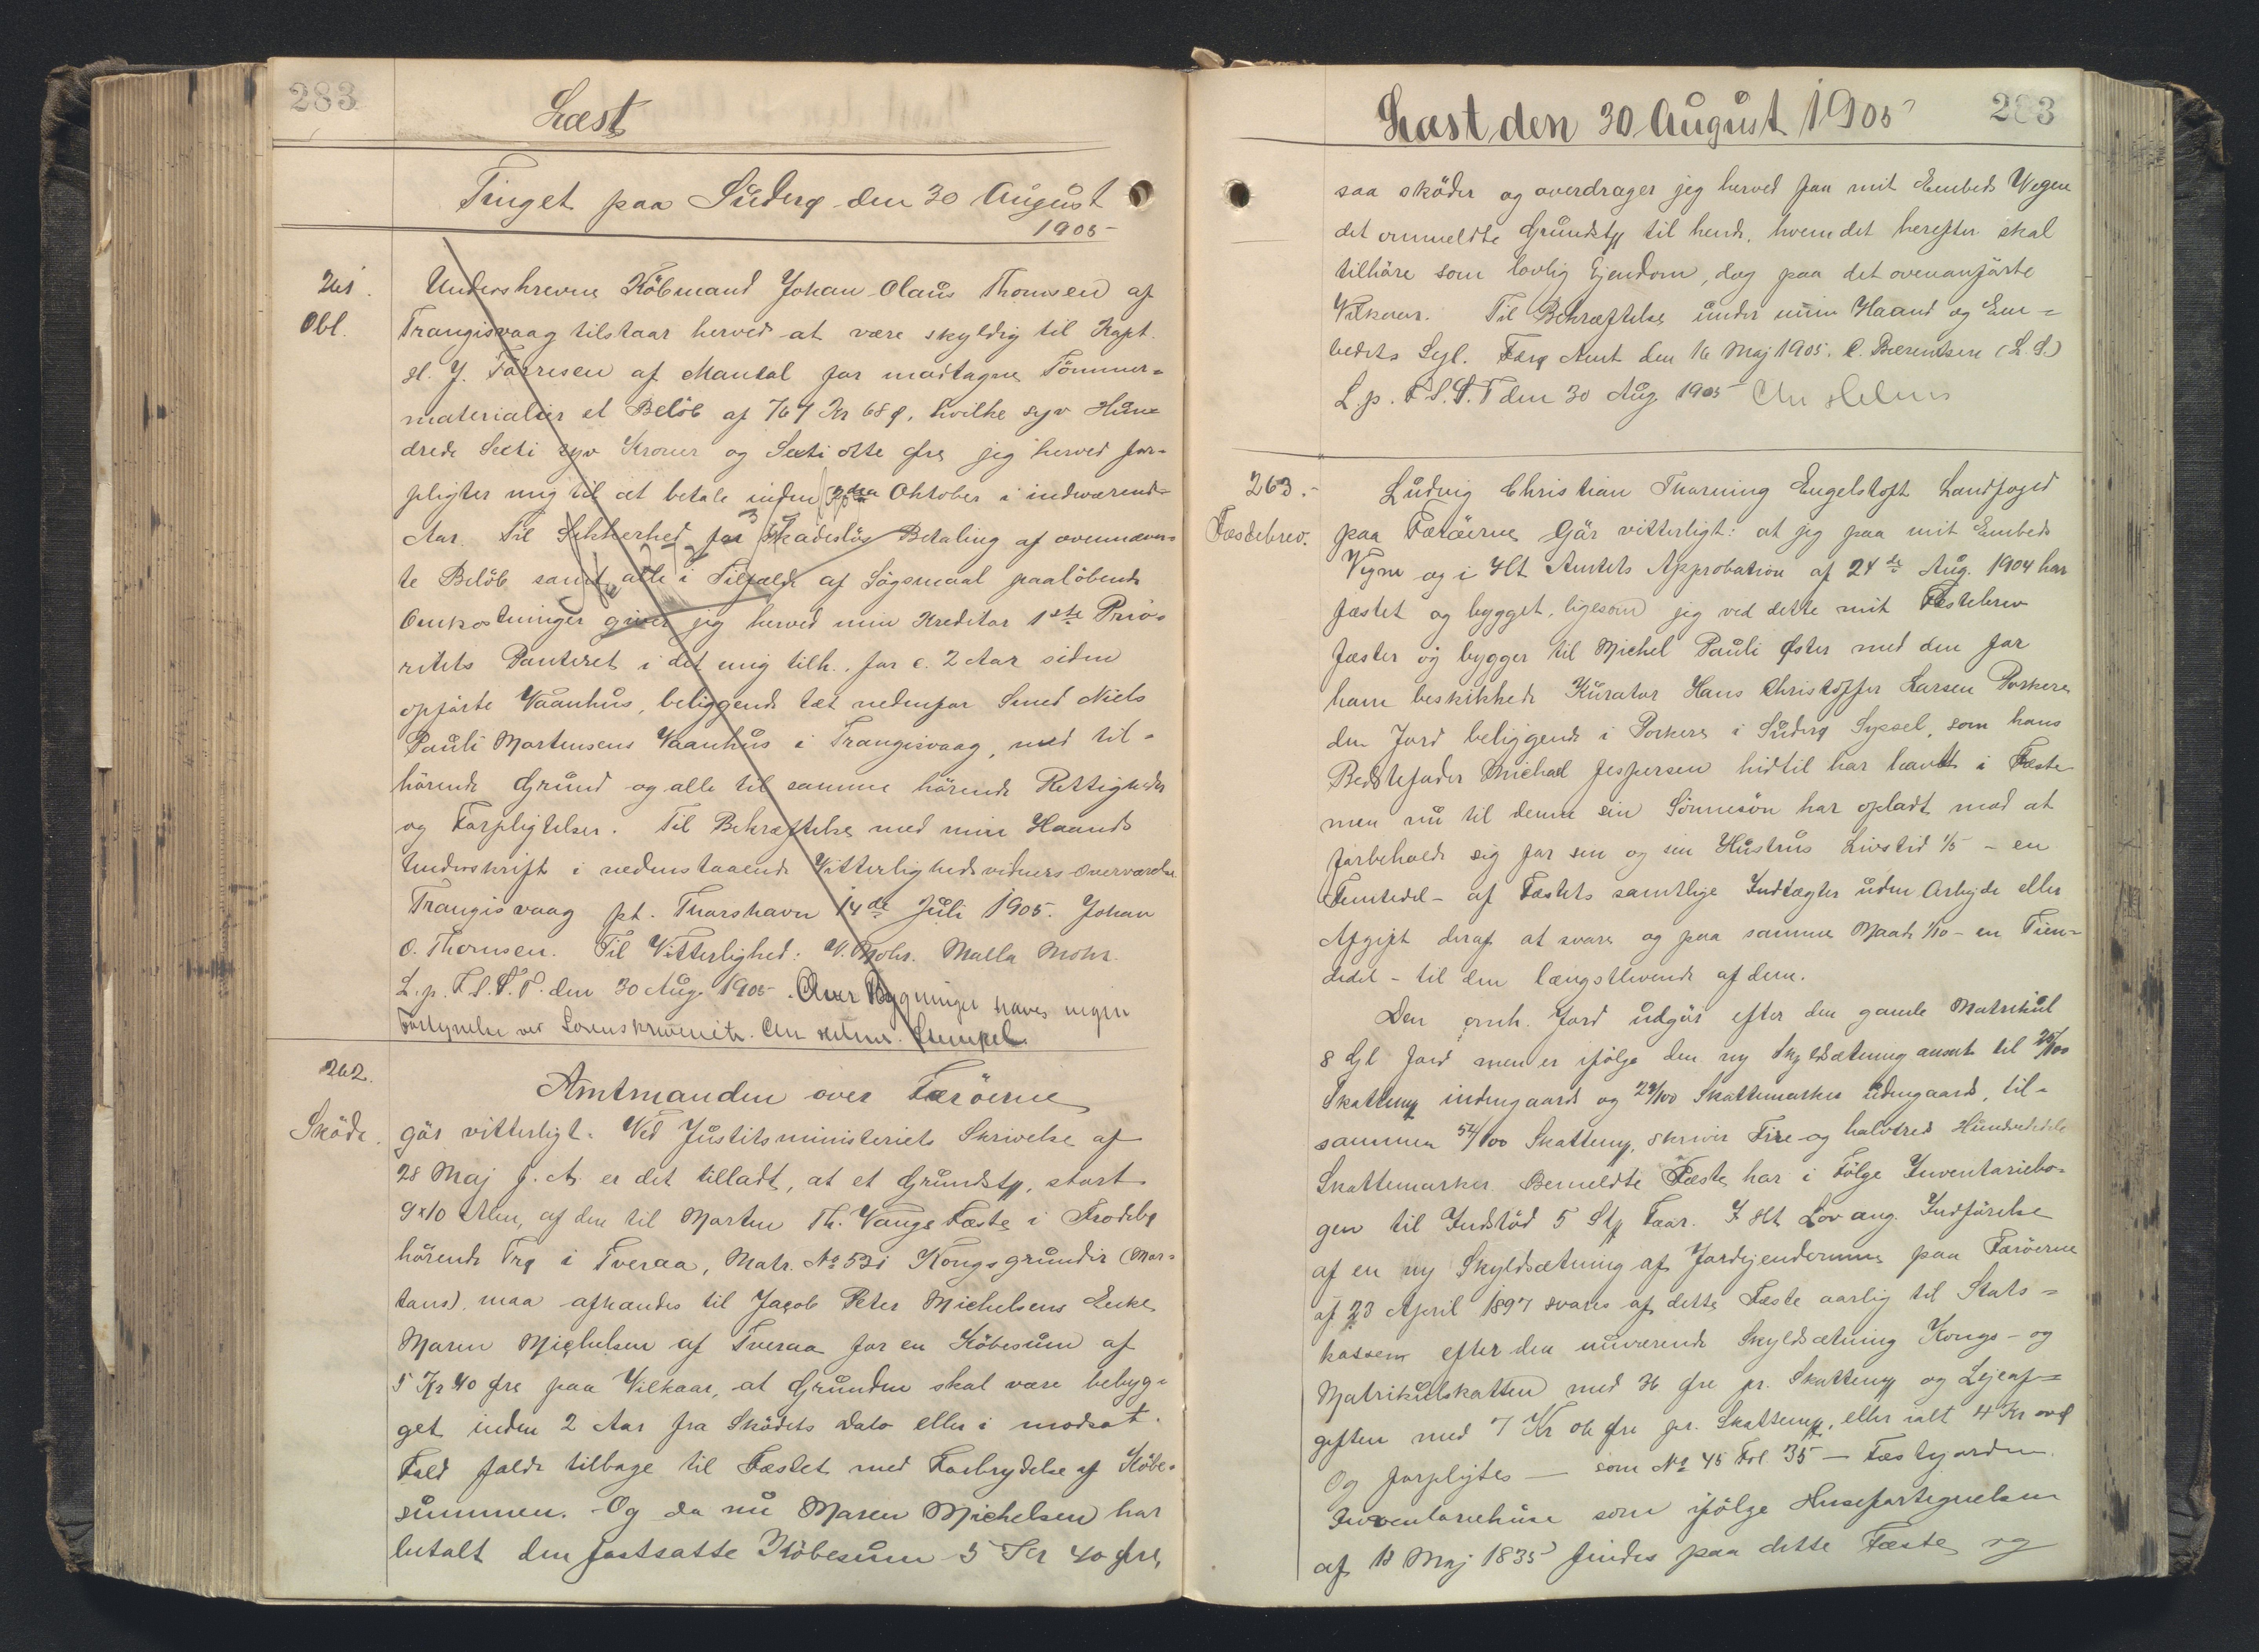 283
Læst
Tinget paa Suderø den 30 August
1905
261.
Obl.
Underskrevne Köbmand Johan Olaus Thomsen af
Trangisvaag tilstaar herved at være skyldig til Kapt.
H. J. Förresen af Mandal for modtagne Tömmer-
materialier et Belöb af 767 Kr 68 ø, hvilke syv Hun-
drede Sexti syv Kroner og Sexti otte Øre jeg herved for-
pligter mig til at betale inden Oktober i indeværende
Aar. Til Sikkerhed for skadeslös Betaling af ovennævn-
te Belöb samt alle i Tilfælde af Sögsmaal paalöbende
Omkostninger giver jeg herved min Kreditor 1ste Prio-
ritets Panteret i det mig tilh. for c. 2 Aar siden
opförte Vaanhus, beliggende tæt nedenfor Smed Niels
Pauli Mortensens Vaanhus i Trangisvaag, med til-
hörende Grund og alle til samme hörende Rettigheder
og Forpligtelser. Til Bekræftelse med min Haands
Underskrift i nedenstaaende Vitterlighedsvidners Overværelse
Trangisvaag pt. Thorshavn 14de Juli 1905. Johan
O. Thomsen. Til Vitterlighed: V. Mohr. Malla Mohr.
L. p. F. S. S. T. den 30 Aug. 1905. Over Bygninger haves ingen
Forsynelse ved Sorenskriveriet. Chr Helms. Stempel.
262.
Sköde.
Amtmanden over Færöerne
gör vitterligt: Ved Justitsministeriets Skrivelse af
28 Maj f. A. er det tilladt, at et Grundst., stort
9x10 Alen, af den til Morten Th. Vangs Fæste i Frodebø
hörende Trø i Tveraa, Matr. No 53i Kongsgrundir (Mor-
tans), maa afhandes til Jacob Peter Michelsens Enke
Maren Michelsen af Tveraa for en Köbesum af
5 Kr 40 Øre paa Vilkaar, at Grunden skal være bebyg-
get inden 2 Aar fra Sködets Dato eller i modsat
Fald falde tilbage til Fæstet med Forbrydelse af Köbe-
summen. Og da nu Maren Michelsen har
betalt den fastsatte Köbesum 5 Kr 40 Øre,
Læst den 30 August 1905
283
saa sköder og overdrager jeg herved paa mit Embeds Vegne
det ommeldte Grundst. til hende, hvem det herefter skal
tilhöre som lovlig Ejendom, dog paa det ovenanförte
Vilkaar. Til Bekræftelse under min Haand og Em-
bedets Segl. Færø Amt den 16 Maj 1905. C. Bærentsen (L. S.)
L. p. F. S. S. T den 30 Aug 1905 Chr Helms
263.
Fæstebrev.
Ludvig Christian Thorning Engelstoft Landfoged
paa Færöerne Gör vitterligt: at jeg paa mit Embeds
Vegne og i Hlt Amtets Approbation af 24de Aug. 1904 har
fæstet og bygget, ligesom jeg ved dette mit Fæstebrev
fæster og bygger til Michel Pauli Øster med den for
ham beskikkede Kurator Hans Christoffer Larsen Porkere
den Jord beliggende i Porkere i Suderø Syssel, som hans
Bedstefader Michael Jespersen hidtil har havt i Fæste
men nu til denne sin Sönnesön har opladt mod at
forbeholde sig for sin og sin Hustrus Livstid 1/5 - en
Femtedel - af Fæstets samtlige Indtægter uden Arbejde eller
Afgift deraf at svare og paa samme Maade 1/10 - en Tien-
dedel - til den længstlevende af dem.
Den omh. Jord udgör efter den gamle Matrikul
8 Gl Jord men er ifölge den ny Skyldsætning ansat til 25/100
Skattem indengaards og 29/100 Skattemarker udengaards, til-
sammen 54/100 Skattem, skriver Fire og halvtreds Hundrededele
Skattemarker. Bemeldte Fæste har i Fölge Inventariebo-
gen til Indstöd 5 St Faar. I Hlt Lov ang. Indförelse
af en ny Skyldsætning af Jordejendomme paa Færöerne
af 23 April 1897 svares af dette Fæste aarlig til Stats-
kassen efter den nuværende Skyldsætning Kongs- og
Matrikulskatten med 36 Øre pr. Skattem og Lejeaf-
giften med 7 Kr 06 Øre pr. Skattem, eller ialt 4 Kr
Og forpligtes — som No 45 Fol. 35 — Fæstejorden.
Inventariehuse som ifölge Husefortegnelsen
af 12 Maj 1835 findes paa dette Fæste og